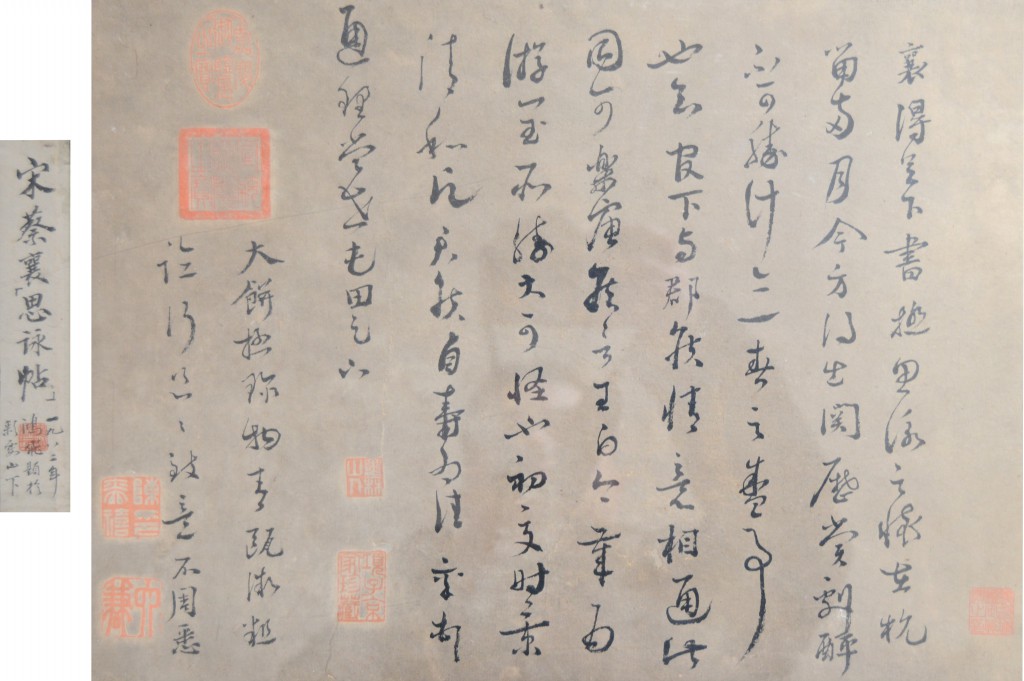 襄得足下書極思詠之懷在杭
留兩月今方得出關歷賞劇醉
不可勝計亦一春之盛事
也知官下與郡侯情意相通此
固可樂唐侯言王白今歲為
游閏所勝大可怪也初夏時景
清和願君侯自壽為佳襄頓首
通理當世屯田足下
大餅極珍物青甌微麤
臨行匆匆致意不周悉
宋蔡襄「思詠帖」
一九八三年
鴻飛題於
山下